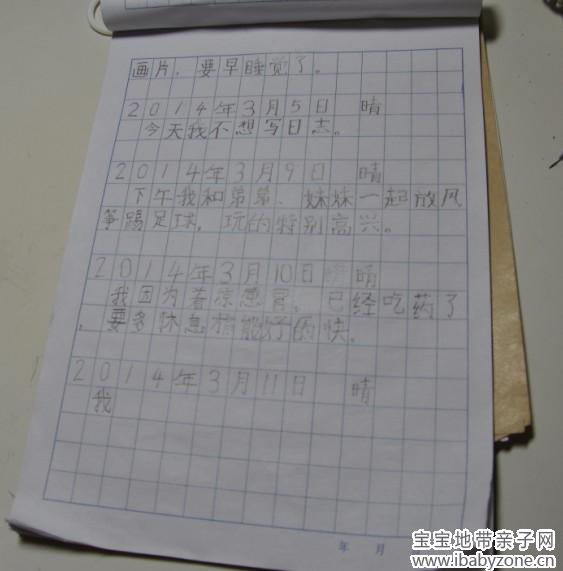 画片，要早睡觉了。
2014年3月5日 晴
今天我不想写日志。
2014年3月9日 晴
下午我和弟弟、妹妹一起放风
筝踢足球，玩的特别高兴。
2014年3月10日 晴
我因为着凉感冒，已经吃药了
，要多休息才能好的快。
2014年3月11日 晴
我
年 月
宝宝地带亲子网
www.ibabyzone.cn